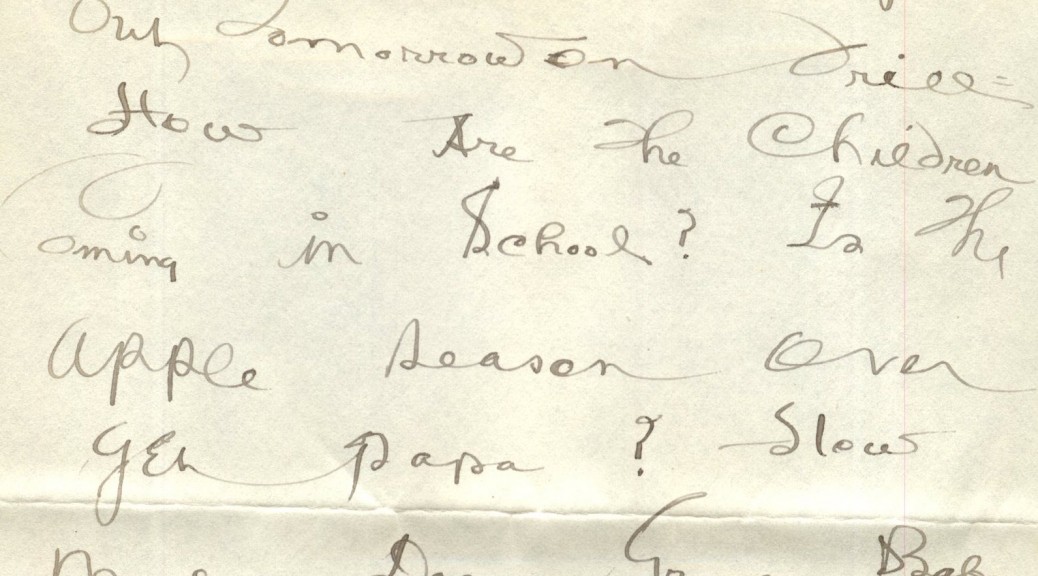 Out Tomorrow on Drill=
How Are The Children
Coming in School? Is The
Apple Season Over
Yet Papa ? Slow